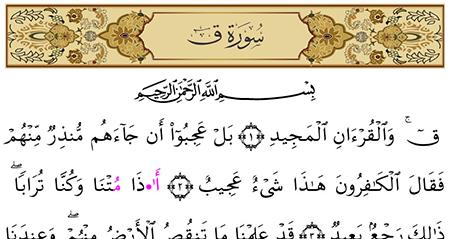 سُورَةُ قٓ
بِسْمِ ٱللَّهِ ٱلرَّحْمَٰنِ ٱلرَّحِيمِ
قٓۚ وَٱلْقُرْءَانِ ٱلْمَجِيدِ ﴿١﴾ بَلْ عَجِبُوٓا۟ أَن جَآءَهُم مُّنذِرٌ مِّنْهُمْ
فَقَالَ ٱلْكَٰفِرُونَ هَٰذَا شَىْءٌ عَجِيبٌ ﴿٢﴾ أَا۬ذَا مُتْنَا وَكُنَّا تُرَابًاۖ
ذَٰلِكَ رَجْعٌۢ بَعِيدٌ ﴿٣﴾ قَدْ عَلِمْنَا مَا تَنقُصُ ٱلْأَرْضُ مِنْهُمْۖ وَعِندَنَا